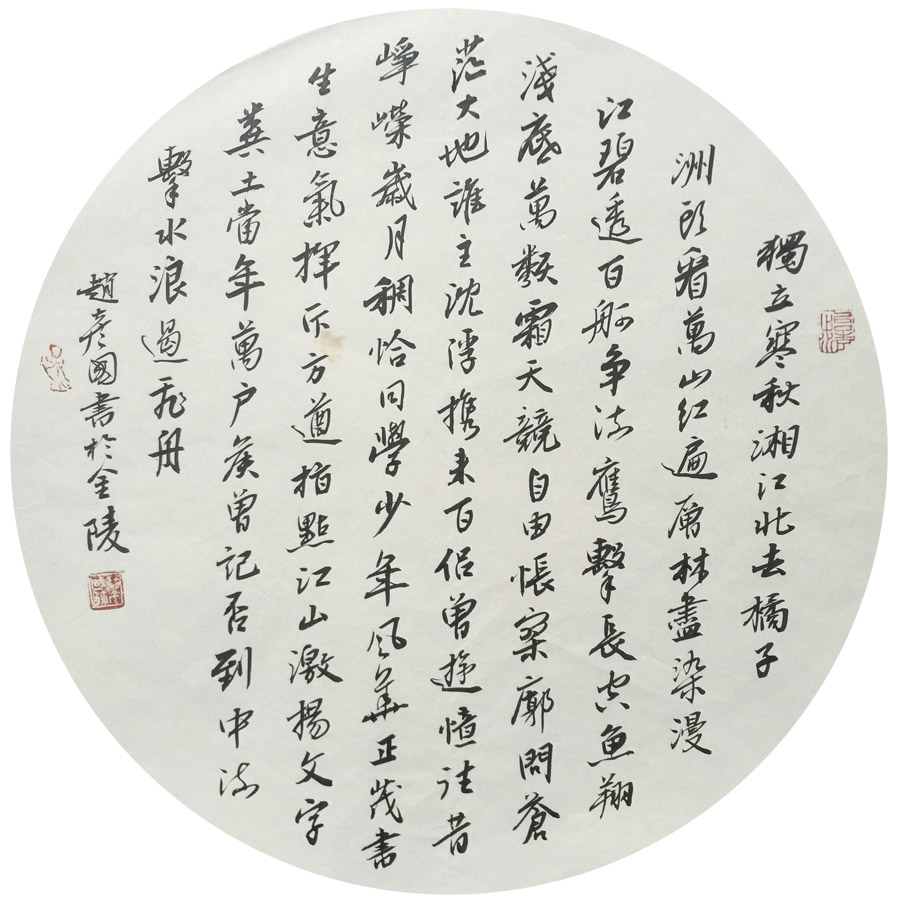 獨立寒秋湘江北去橘子
洲頭看萬山紅遍層林盡染漫
江碧透百舸争流鷹擊長空魚翔
淺底萬類霜天競自由悵寥廓問蒼
茫大地誰主沈浮携来百侶曾遊憶往昔
崢嶸歲月稠恰同學少年風華正茂書
生意氣揮斥方遒指點江山激揚文字
糞土當年萬户矦曾記否到中流
擊水浪遏飛舟
趙彦國書於金陵